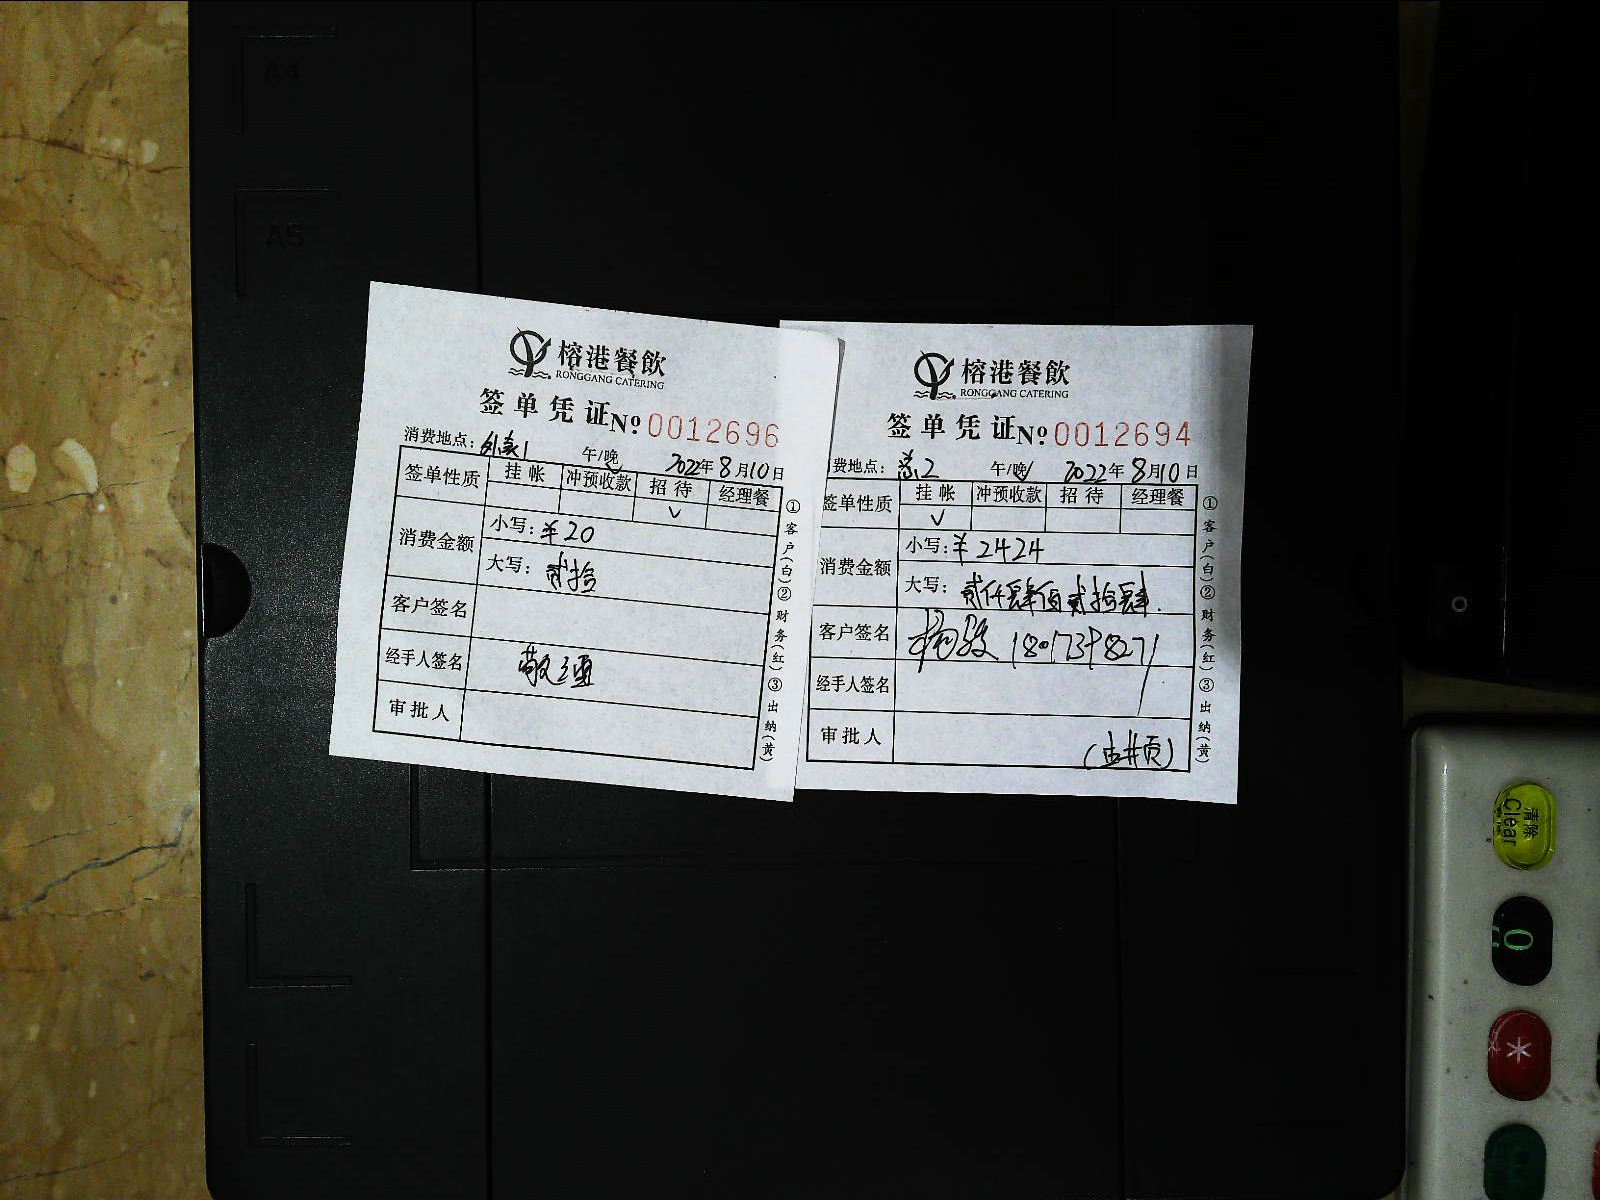 A4
A5
榕港餐飲
RONGGANG CATERING
签单凭证 № 0012696
消费地点： 午/晚 2022年8月10日
签单性质 挂帐 冲预收款 招待 经理餐
✓
消费金额 小写：¥20
大写：贰拾
客户签名
经手人签名
审批人
①客户(白)②财务(红)③出纳(黄)
榕港餐飲
RONGGANG CATERING
签单凭证 № 0012694
费地点： 午/晚 2022年8月10日
签单性质 挂帐 冲预收款 招待 经理餐
✓
消费金额 小写：¥2424
大写：贰仟肆佰贰拾肆
客户签名
经手人签名
审批人
①客户(白)②财务(红)③出纳(黄)
清除
Clear
0
*